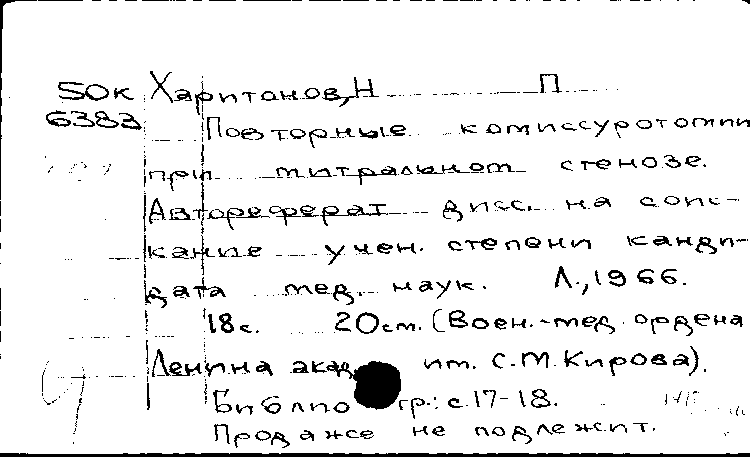 50к Харитонов, Н П
6383 Повторные комиссуротомии
при митральном стенозе.
Автореферат дисс. на соис-
кание учен. степени канди-
дата мед. наук. Л., 1966.
18с. 20см. (Воен.-мед. ордена
Ленина акад. им. С.М.Кирова).
Библиогр.: с.17-18.
Продаже не подлежит.